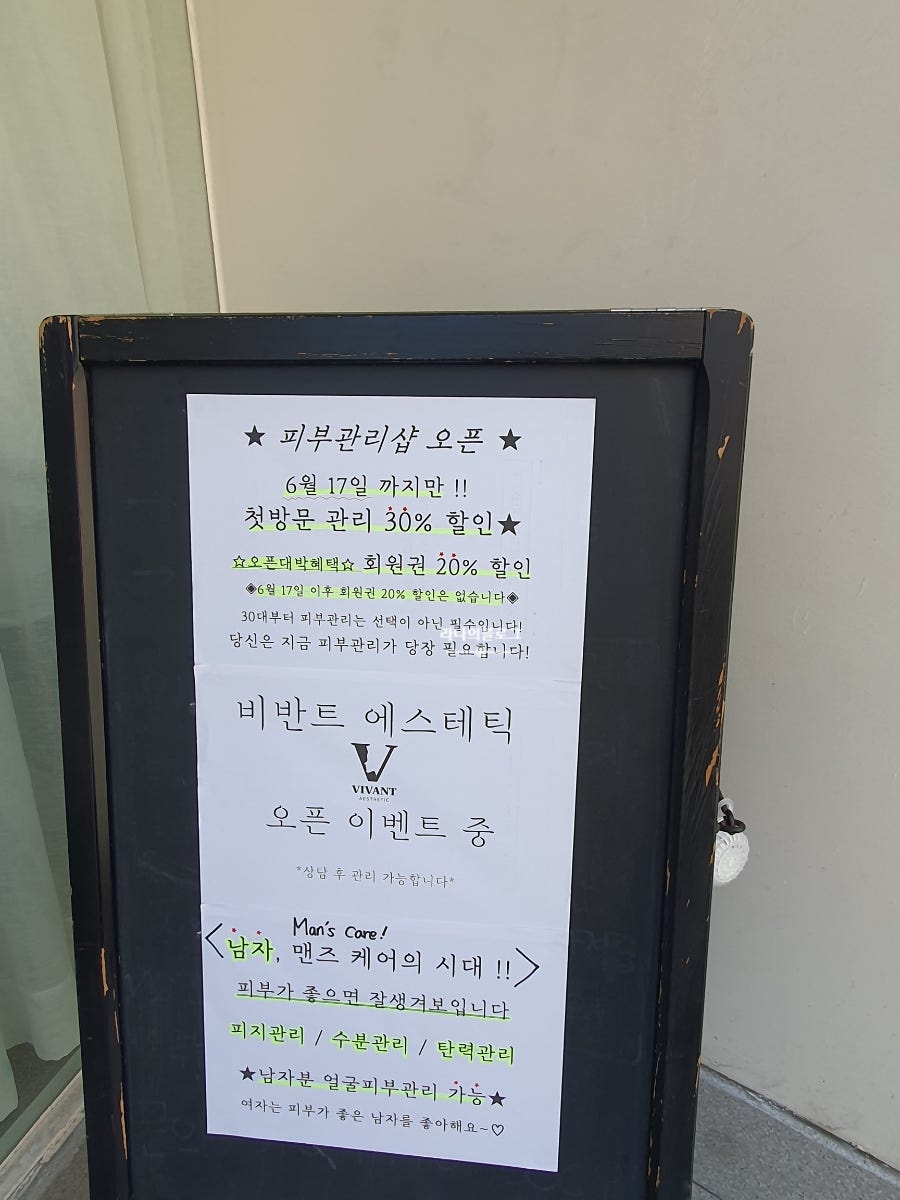 ★ 피부관리샵 오픈 ★
6월 17일 까지만 !!
첫방문 관리 30% 할인★
☆오픈대박혜택☆ 회원권 20% 할인
◈6월 17일 이후 회원권 20% 할인은 없습니다◈
30대부터 피부관리는 선택이 아닌 필수입니다!
당신은 지금 피부관리가 당장 필요합니다!
비반트 에스테틱
V
VIVANT
AESTHETIC
오픈 이벤트 중
*상담 후 관리 가능합니다*
Man's Care!
<남자, 맨즈 케어의 시대 !!>
피부가 좋으면 잘생겨보입니다
피지관리 / 수분관리 / 탄력관리
★남자분 얼굴피부관리 가능★
여자는 피부가 좋은 남자를 좋아해요~♡